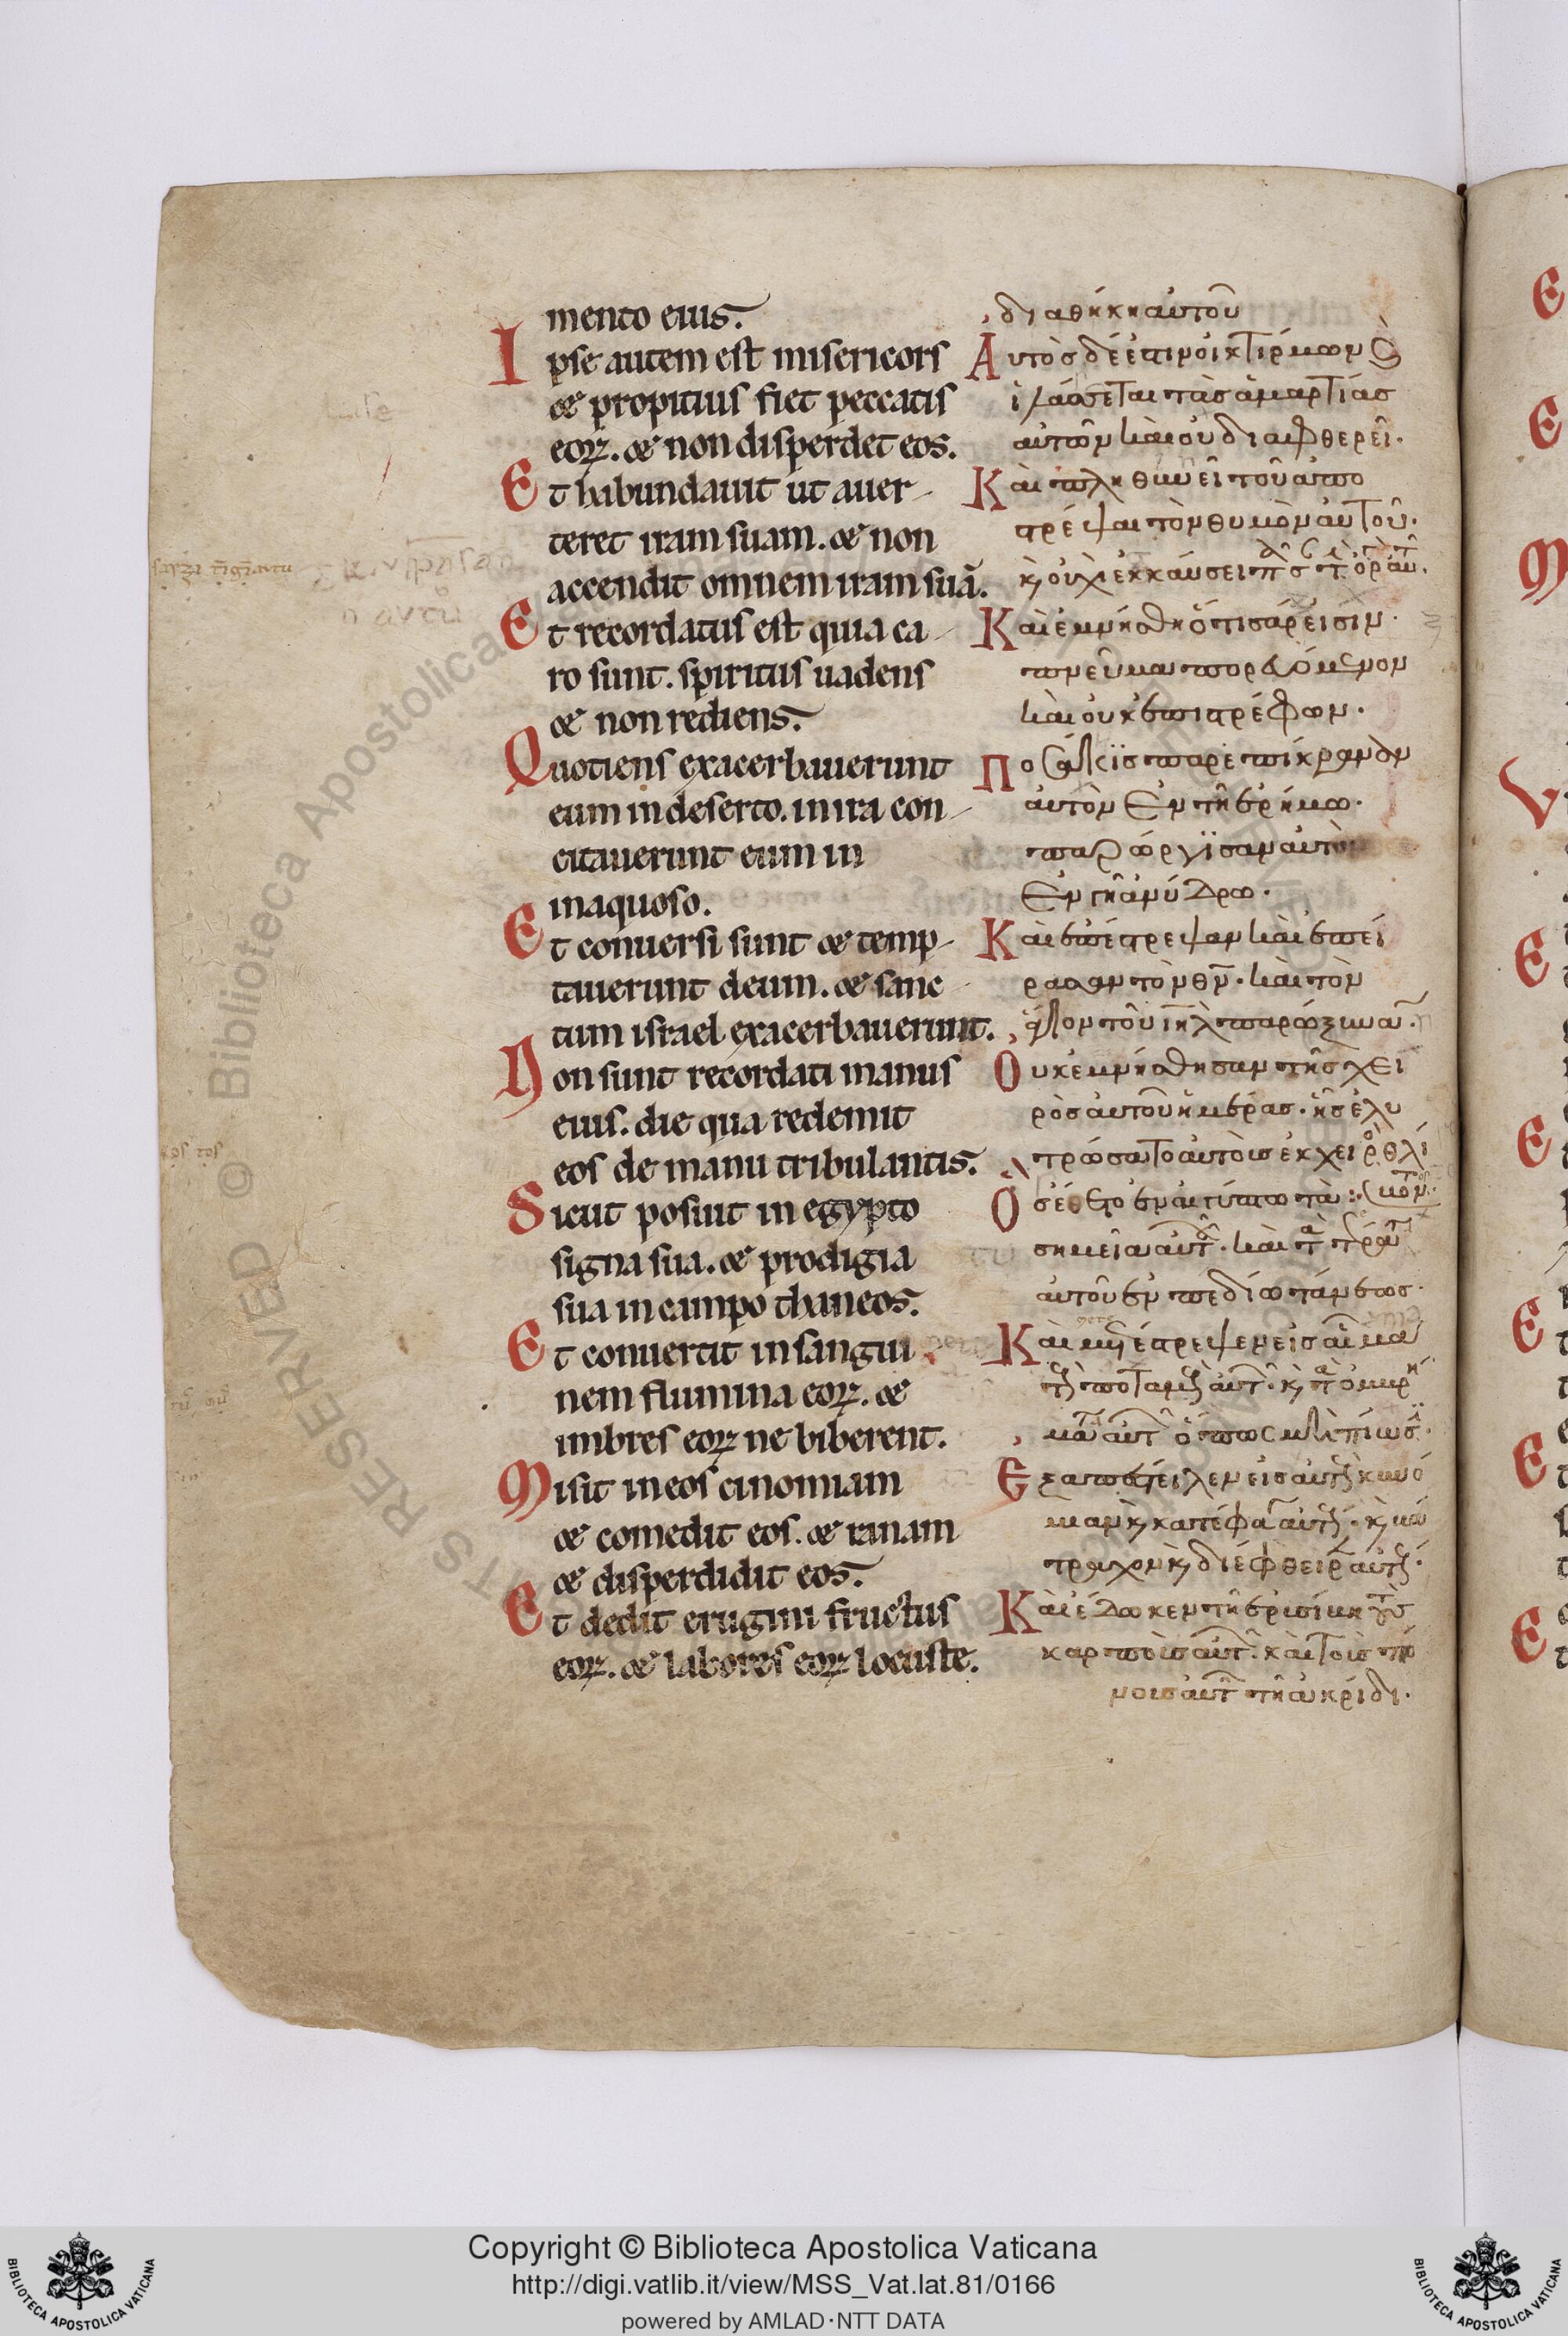 mento eius.
Ipse autem est misericors
& propitius fiet peccatis
eoꝝ. & non disperdet eos.
Et habundauit ut auer-
teret iram suam. & non
accendit omnem iram suā.
Et recordatus est quia ca-
ro sunt. spiritus uadens
& non rediens.
Quotiens exacerbauerunt
eum in deserto. in ira con-
citauerunt eum in
inaquoso.
Et conuersi sunt & temp-
tauerunt deum. & sanc-
tum israel exacerbauerunt.
Non sunt recordati manus
eius. die qua redemit
eos de manu tribulantis.
Sicut posuit in egypto
signa sua. & prodigia
sua in campo thaneos.
Et conuertit in sangui-
nem flumina eoꝝ. &
imbres eoꝝ ne biberent.
Misit in eos cinomiam
& comedit eos. & ranam
& disperdidit eos.
Et dedit erugini fructus
eoꝝ. & labores eoꝝ locuste.
διαθήκη αὐτοῦ
Αυτὸσ δέ ἐστιν οἰκτίρμων
ἱλάσεται ταὶσ ἁμαρτίασ
αὐτῶν καὶ ου διαφθερεῖ.
Καὶ πληθυνεῖ τοῦ ἀπο
στρέψαι τὸν θυμὸν αυτοῦ.
κ οὐχὶ ἐκκαύσει
Καὶ ἐμνήσθη ὅτι σάρξ εἰσίν.
πνεῦμα πορευόμενον
καὶ ουκ επιστρέφων.
Ποσάκϊσ παρεπίκραναν
ἀυτὸν ἐν τῆ ερήμω.
παρώργϊσαν αὐτὸν
Ἐν γῆ ἀνύδρω.
Καὶ επέστρεψαν καὶ επεί
ρασαν τὸν θν̄. καὶ τὸν
ἅγιον τοῦ ιη̄λ παρώξυναν.
Ουκ εμνήσθησαν τῆσ χει
ρὸσ αὐτοῦ ἡμέρασ. ἧσ ἐλυ
τρώσατο αὐτοὺσ ἐκ χειρὸσ θλί
Ὁσ ἔθετο εν αιγύπτω τὰ
σημεῖα αὐτοῦ. καὶ τὰ τέρατα
αὐτοῦ εν πεδίω τάνεωσ.
Καὶ μετέστρεψεν εἰσ αἷμα
τοὺς ποταμοὺς αὐτῶν. κ τὰ ὀμβρή
ματα αὐτῶν ὅπως μὴ πίωσι.
Εξαπέστειλεν εἰσ αὐτοὺς κυνό
μυιαν κ κατέφαγεν αὐτούς. κ βά
τραχον κ διέφθειρεν αὐτούς.
Καὶ ἔδωκεν τῆ ερισίβη τοὺς
καρποὺσ αὐτῶν. κ τοὺσ πό
νουσ αὐτῶν τῆ ἀκρίδι.
Copyright © Biblioteca Apostolica Vaticana
http://digi.vatlib.it/view/MSS_Vat.lat.81/0166
powered by AMLAD·NTT DATA
BIBLIOTECA APOSTOLICA VATICANA
BIBLIOTECA APOSTOLICA VATICANA